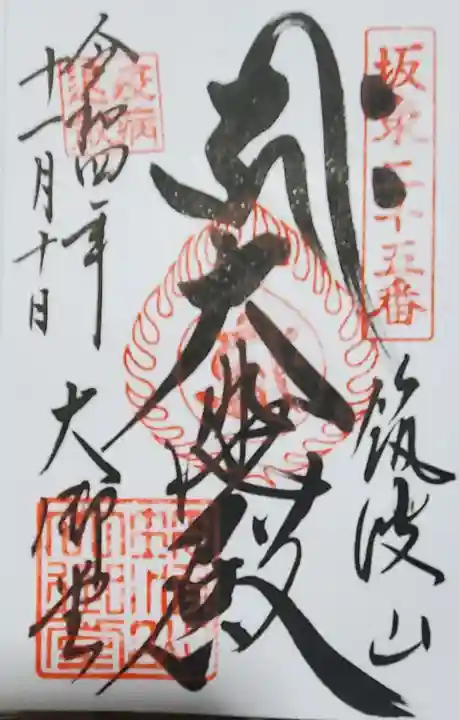 坂東二十五番
筑波山
大悲殿
令和四年
十一月十日
大御堂